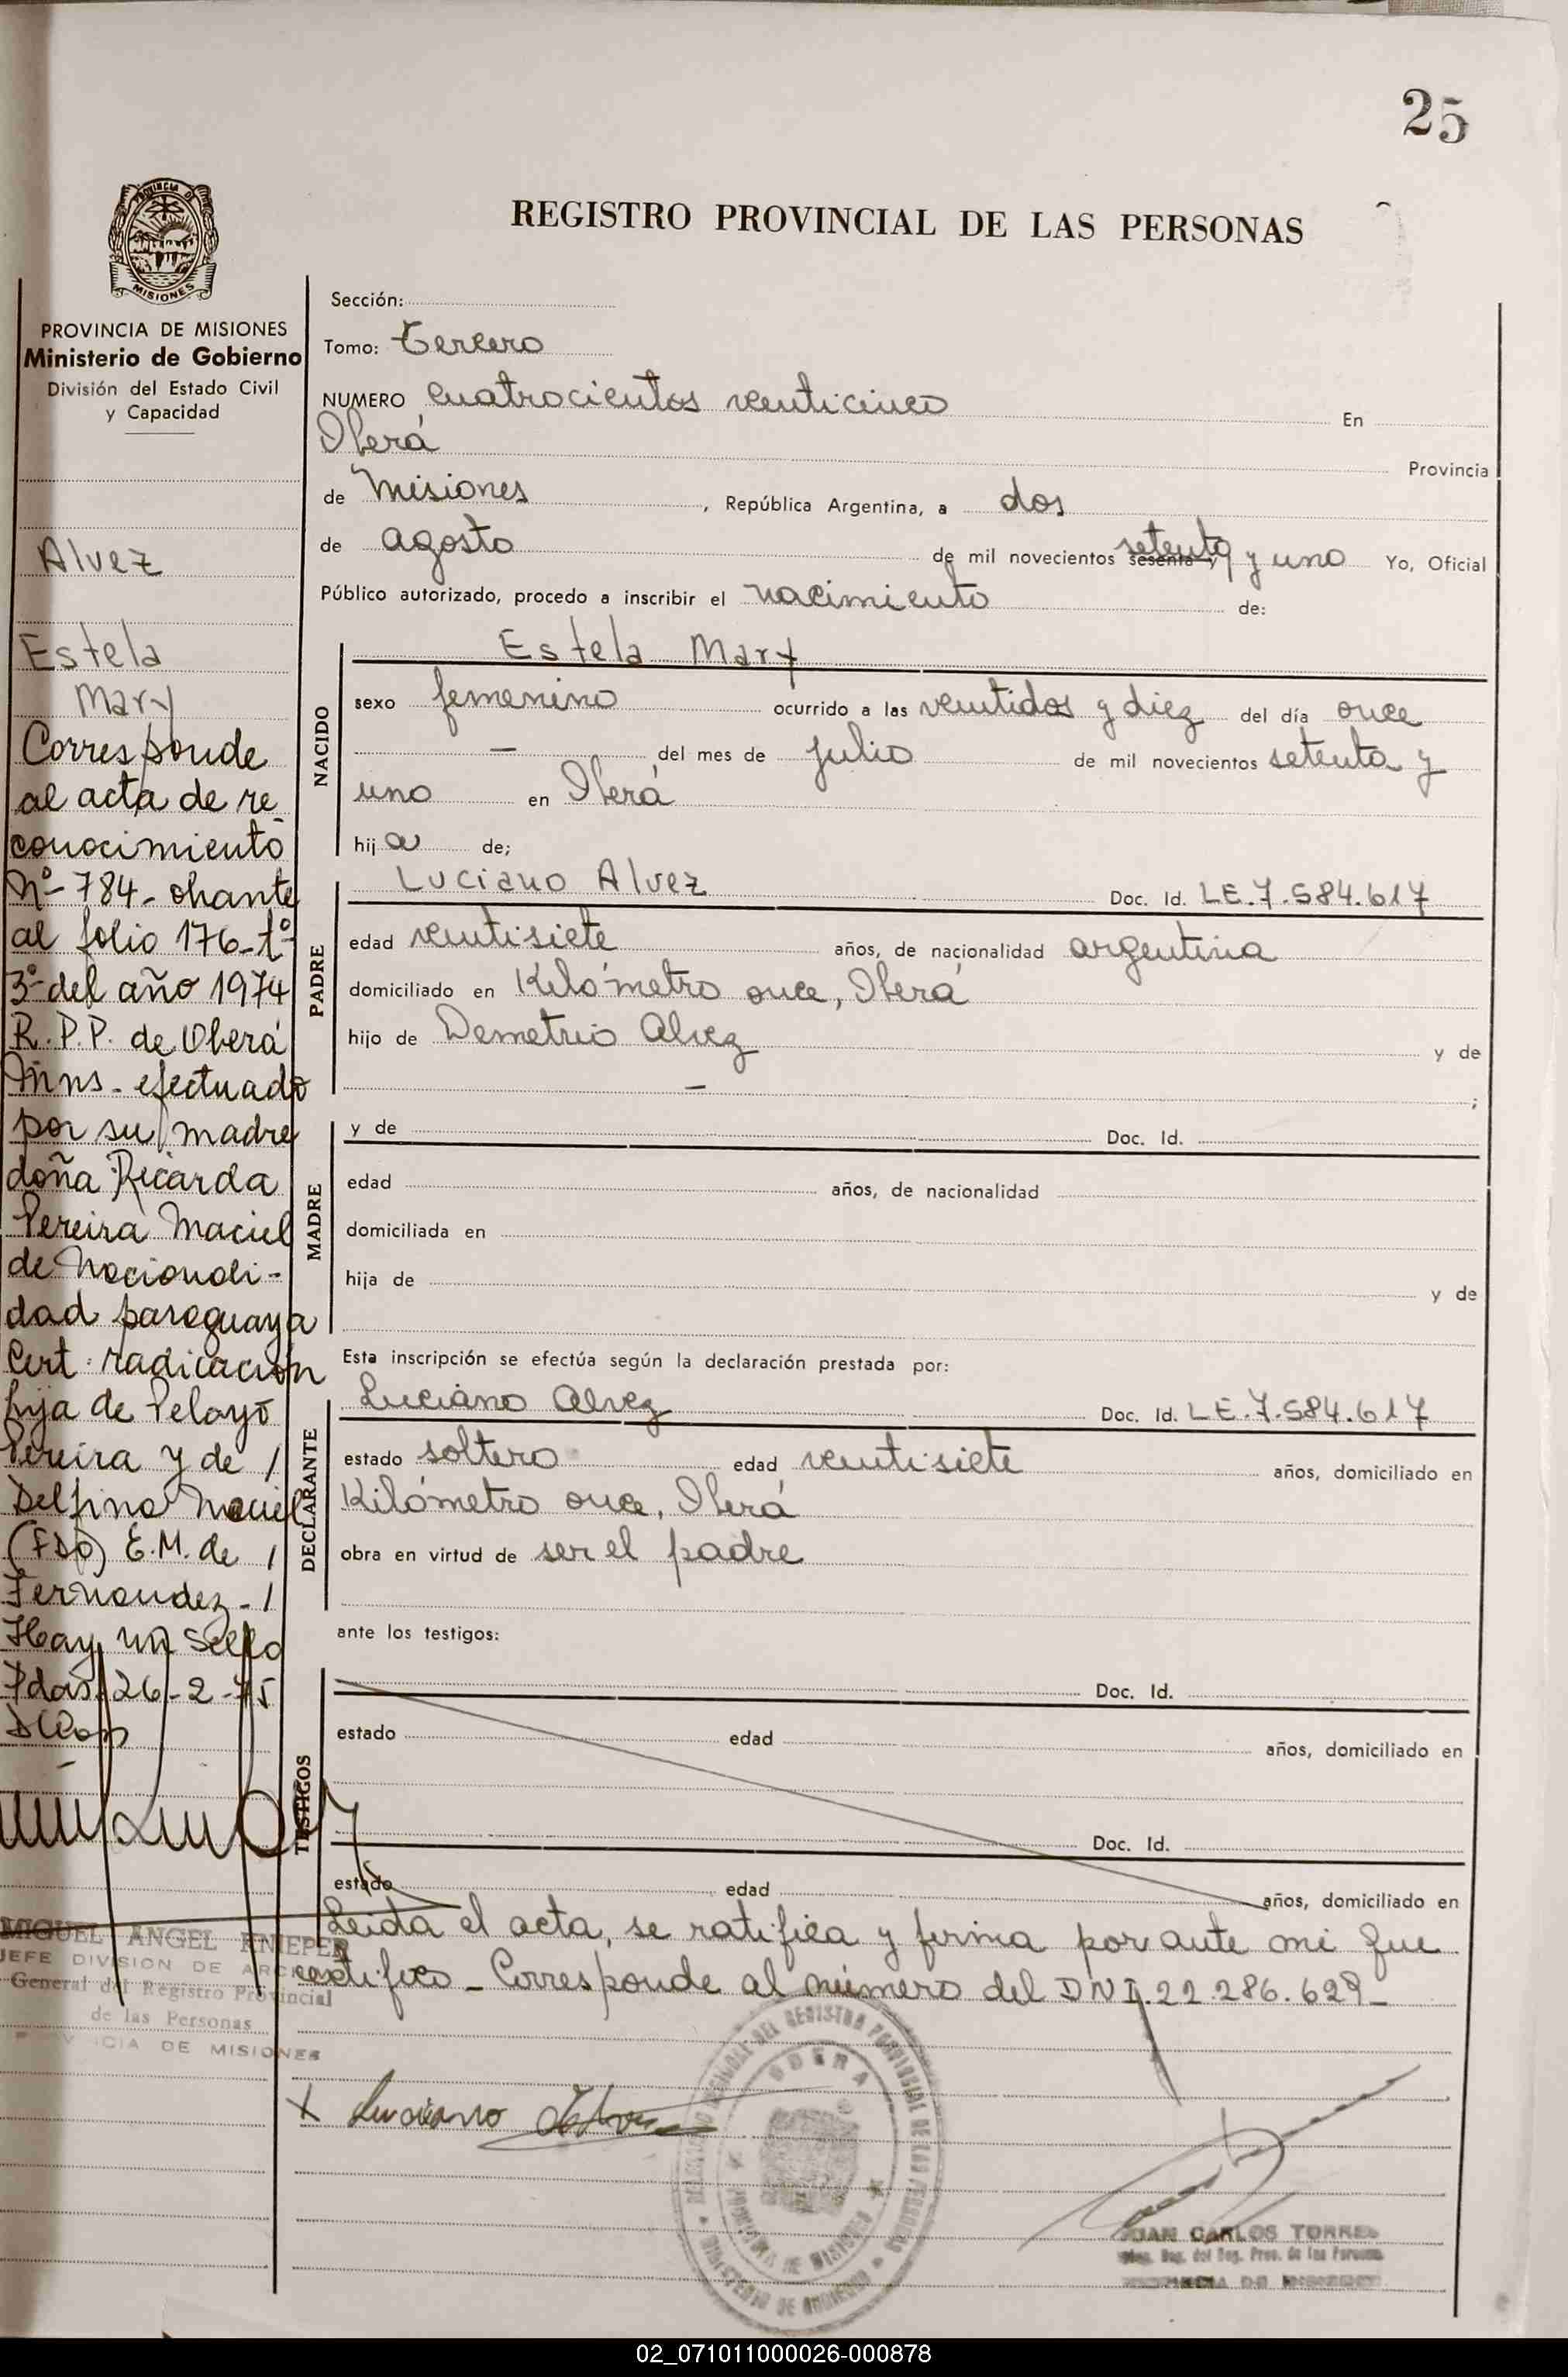 25
REGISTRO PROVINCIAL DE LAS PERSONAS
PROVINCIA DE
MISIONES
PROVINCIA DE MISIONES
Ministerio de Gobierno
División del Estado Civil
y Capacidad
Alvez
Estela
Mary
Corresponde
al acta de re
conocimiento
Nº 784 - obrante
al folio 176 - tº
3º del año 1974
R.P.P. de Oberá
Mns - efectuado
por su madre
doña Ricarda
Pereira Maciel
de Nacionali-
dad paraguaya
Cert. radicación
hija de Pelayo
Pereira y de /
Delfina Maciel
(FDO) E.M. de /
Fernandez - /
Hay un Sello
Pdas. 26-2-75
MIGUEL ANGEL KNIEPER
JEFE DIVISION DE
General del Registro Provincial
de las Personas
DE MISIONES
Sección:
Tomo: tercero
NUMERO cuatrocientos venticinco En
Oberá Provincia
de Misiones, República Argentina, a dos
de agosto de mil novecientos sesenta y setenta y uno Yo, Oficial
Público autorizado, procedo a inscribir el nacimiento de:
NACIDO
Estela Mary
sexo femenino ocurrido a las ventidos y diez del día once
— del mes de julio de mil novecientos setenta y
uno en Oberá
hija de;
PADRE
Luciano Alvez Doc. Id. LE.7.584.617
edad ventisiete años, de nacionalidad argentina
domiciliado en Kilómetro once, Oberá
hijo de Demetrio Alvez y de
— ;
MADRE
y de Doc. Id.
edad años, de nacionalidad
domiciliada en
hija de y de
Esta inscripción se efectúa según la declaración prestada por:
DECLARANTE
Luciano Alvez Doc. Id. LE.7.584.617
estado soltero edad ventisiete años, domiciliado en
Kilómetro once, Oberá
obra en virtud de ser el padre
ante los testigos:
TESTIGOS
Doc. Id.
estado edad años, domiciliado en
Doc. Id.
estado edad años, domiciliado en
Leida el acta, se ratifica y firma por ante mi que
certifico - Corresponde al número del DNI.22.286.629-
x Luciano Alvez
OBERA
PROVINCIA DE MISIONES
JUAN CARLOS TORRES
02_071011000026-000878